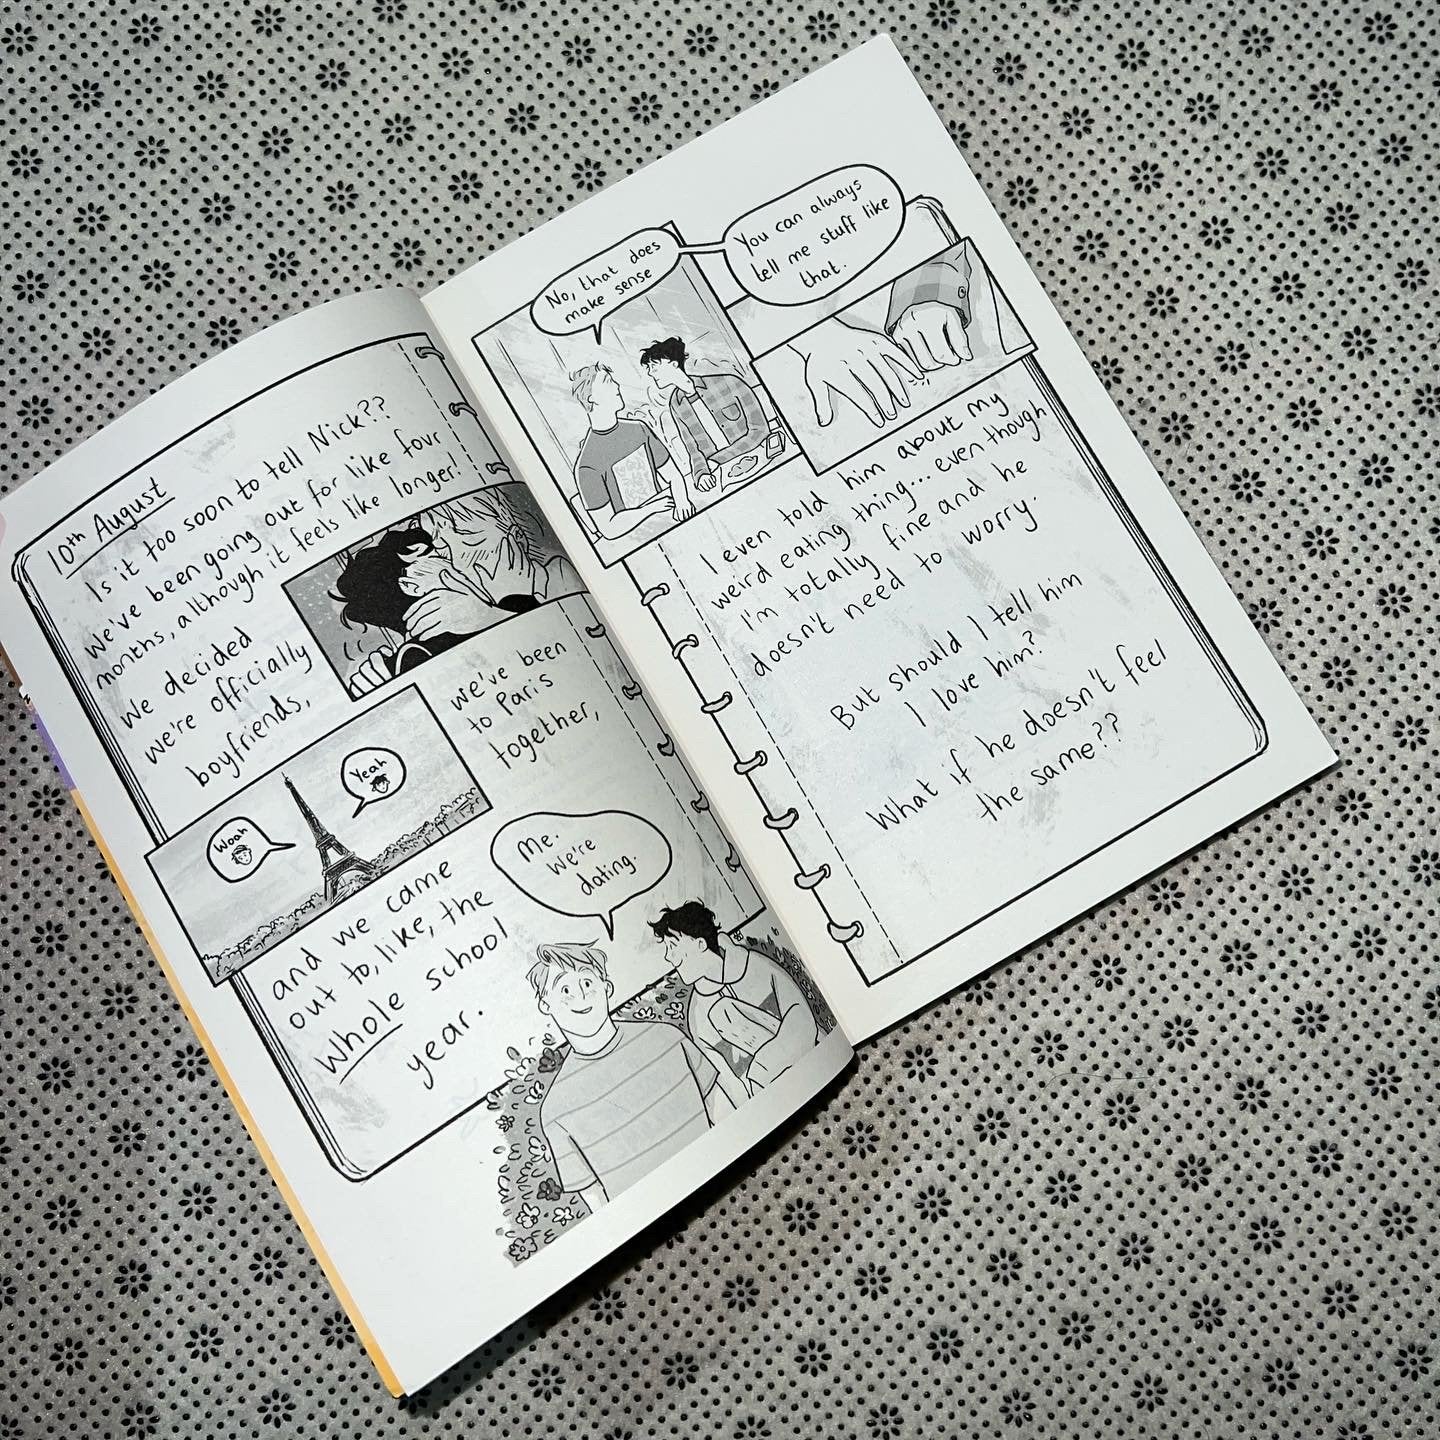 10th August
Is it too soon to tell Nick??
We've been going out for like four
months, although it feels like longer!
We decided
we're officially
boyfriends,
we've been
to Paris
together,
Woah
Yeah
and we came
out to, like, the
whole school
year.
Me.
We're
dating.
No, that does
make sense
You can always
tell me stuff like
that.
I even told him about my
weird eating thing... even though
I'm totally fine and he
doesn't need to worry.
But should I tell him
I love him?
What if he doesn't feel
the same??